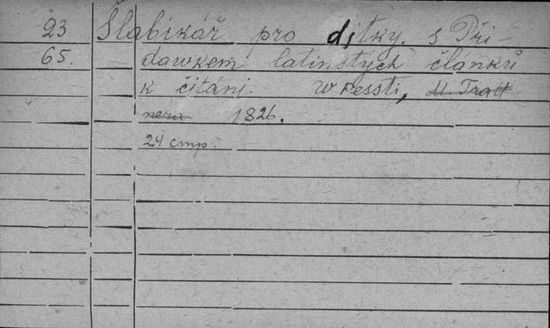 23 Šlabikář pro djtky. s Při
65. dawkem latinských článků
k čitánj. W Pessti, M. Tratt
nera 1826.
24 стр.